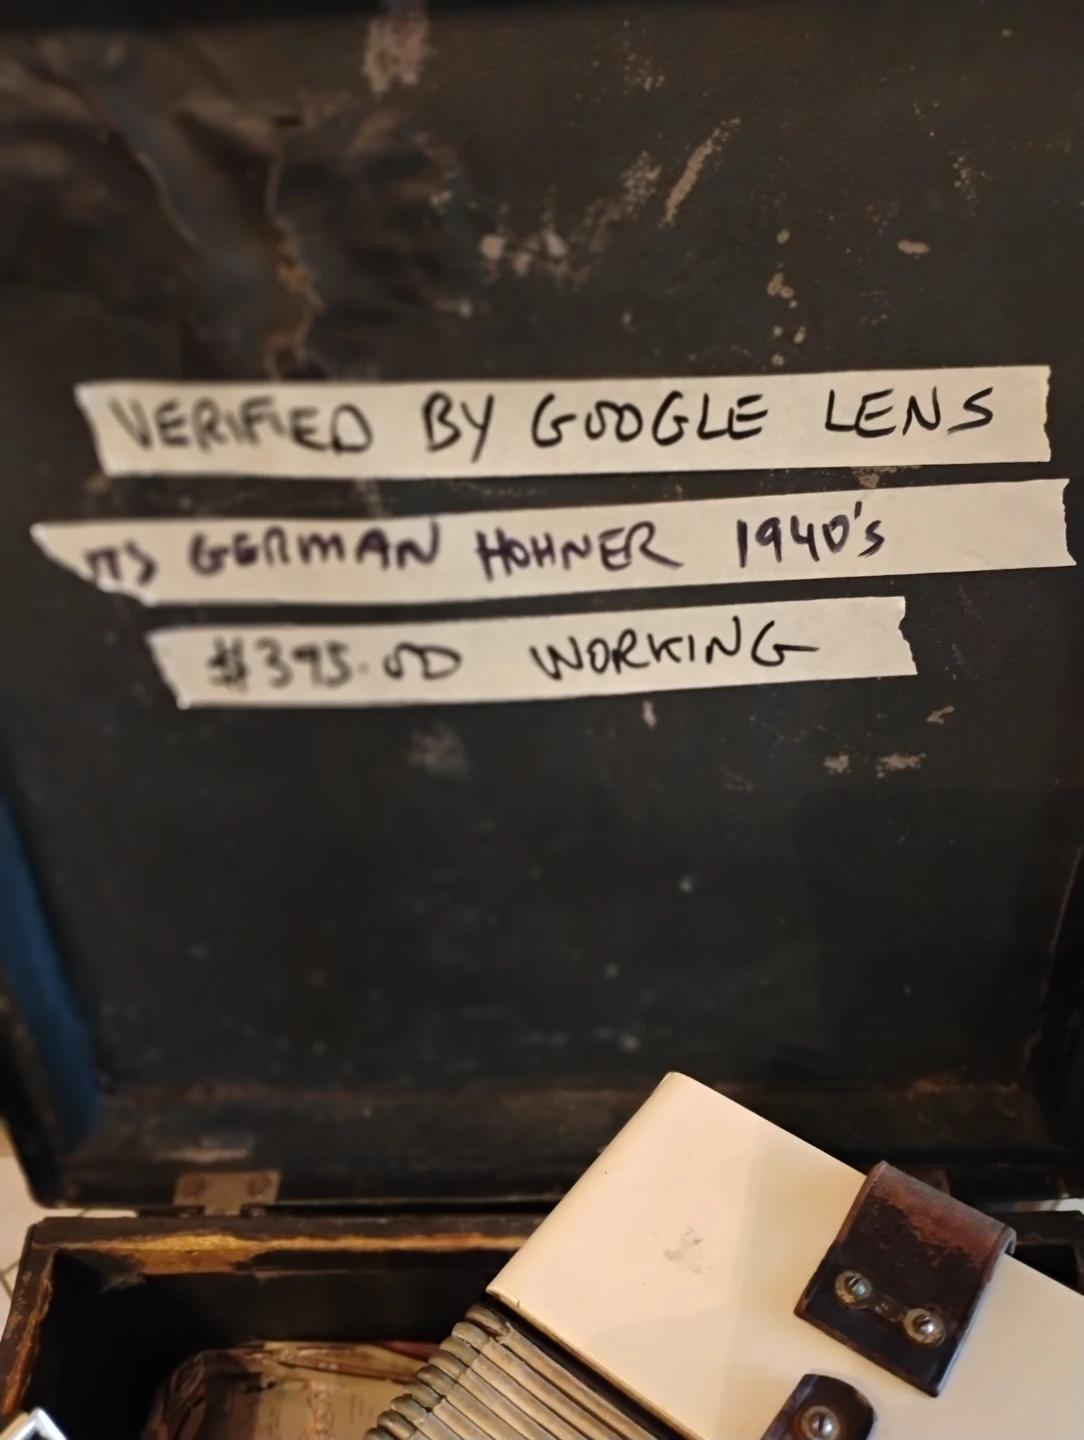 VERIFIED BY GOOGLE LENS
ITS GERMAN HOHNER 1940's
$395.00 WORKING